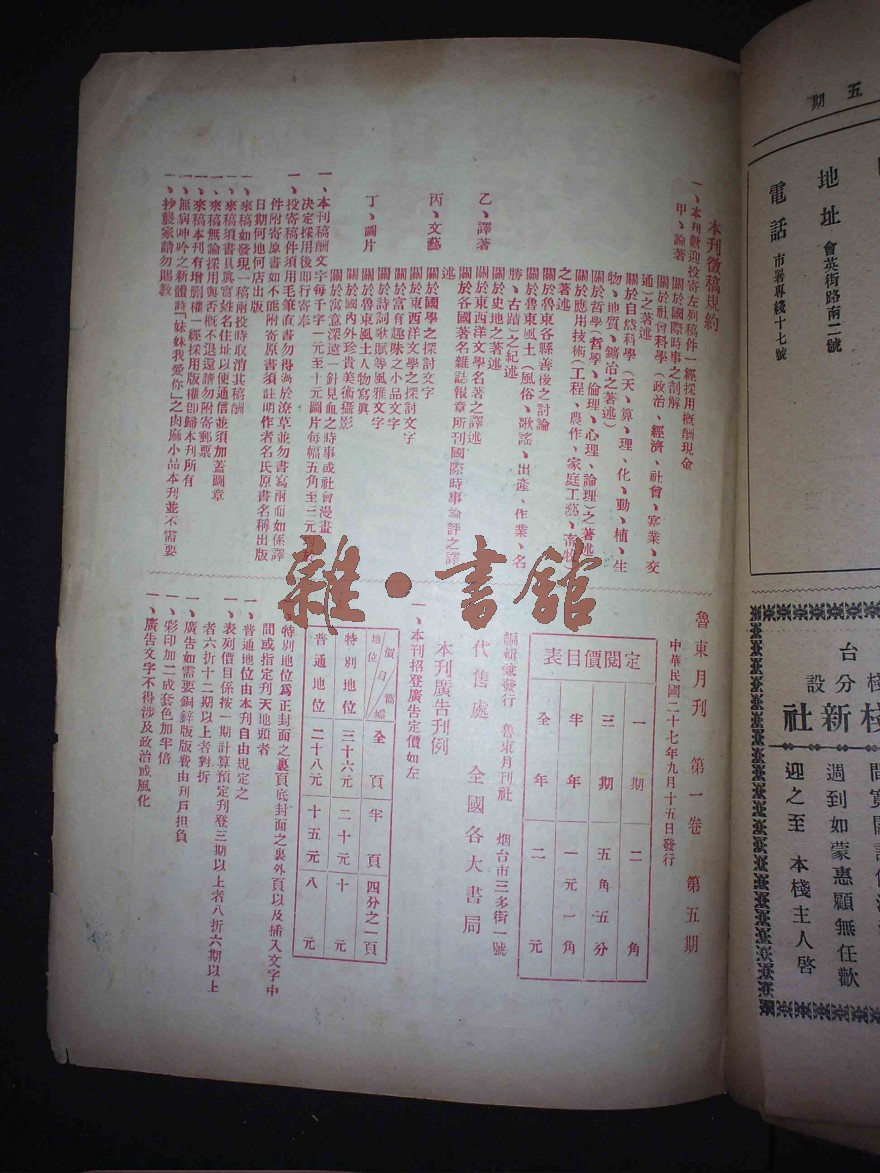 本刊徵稿規約
一、本刊歡迎投寄左列稿件一經採用概酬現金
甲、論著
關於國際時事之剖解
關於社會科學（政治、經濟、社會、實業、交
通）之著述
關於自然科學（天、算、理、化、動、植、生
物、地質、鑛冶之著述）
關於哲學（哲學、倫理、心理、論理）之著述
關於應用技術（工程、農作、家庭工藝、畜牧
之著述
關於魯東各縣善後之討論
關於魯東風土（風俗、歌謠、出產、作業、名
勝、古蹟）之紀述
乙、譯著
關於史地之著述
關於東西洋文學名著之譯述
關於各國著名雜誌報章所刊國際時事論評之譯
述
丙、文藝
關於國學之探討文字
關於東西洋文學之探討文字
關於富有趣味之小品文字
關於詩詞歌賦等風雅文字
丁、圖片
關於魯東風土人物寫眞
關於國內外珍貴美術攝影
關於寓意深遠一針見血之時事或社會漫畫
一、本刊稿酬文字每千字一元至十元圖片每幅五角至三元
決定採用後即行寄奉
一、投寄稿件須用毛筆直書勿得過於潦草並勿書寫兩面如係譯
件附寄原書如不能附寄原書須註明作者名氏原書名稱出版
日期何地何店出版
一、來稿如發現一稿兩投時取消其稿酬
一、來稿須書具眞寫姓名住址以便通信並須加蓋圖章
一、來稿無論採用與否概不退還請勿附寄郵票
一、來稿本刊有增删權一經採用版權即歸本刊所有
一、無病呻吟之新體詩「妹妹我愛你」之肉麻小品本刊並不需要
一、抄襲家請勿賜教
魯東月刊 第一卷 第五期
中華民國二十七年九月十五日發行
定閱價目表
一期 二角
三期 五角五分
半年 一元一角
全年 二元
編輯兼發行 魯東月刊社 烟台市三多街一號
代售處 全國各大書局
本刊廣告刊例
一、本刊招登廣告定價如左
地位 價目 篇幅 全頁 半頁 四分之一頁
特別地位 三十六元 二十元 十元
普通地位 二十八元 十五元 八元
特別地位爲正封面之裏頁底封面之裏外頁以及插入文字中
間或指定刋天地頭者
一、普通地位由本刋自由規定之
一、表列價目係按一期計算預定刋登三期以上者八折六期以上
者六折十二期以上者對折
一、廣告如需要銅鋅版版費由刋戶担負
一、彩印加二成套色加半倍
一、廣告文字不得涉及政治或風化
雜·書館
五期
地址 會英街路南二號
電話 市署專綫十七號
台
棧分設
棧新社
週到如蒙惠顧無任歡
迎之至 本棧主人啓